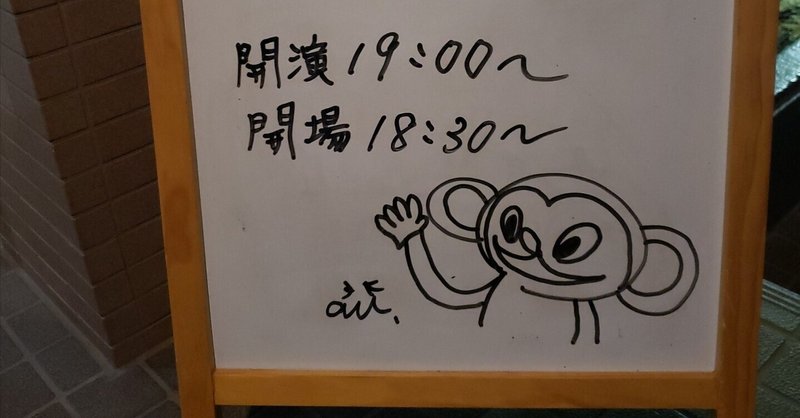 開演 19:00〜
開場 18:30〜